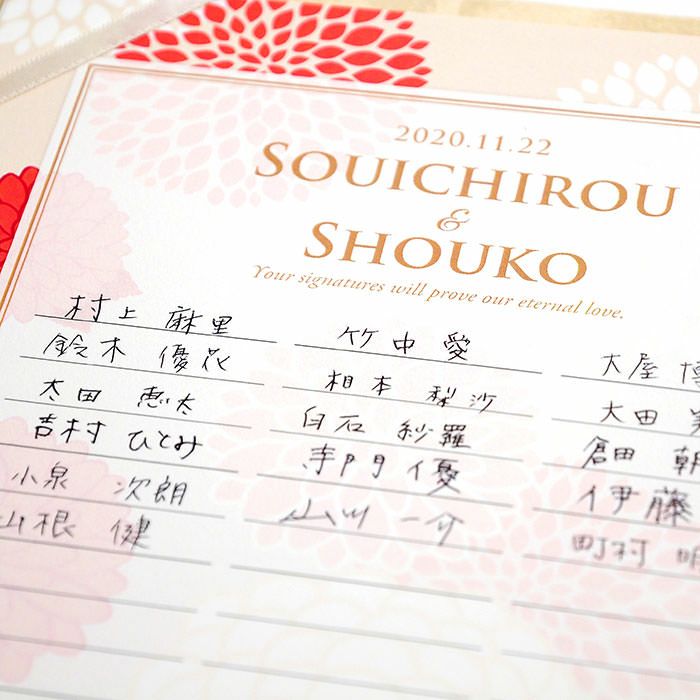 2020.11.22
SOUICHIROU
&
SHOUKO
Your signatures will prove our eternal love.
村上 麻里 竹中 愛 大屋
鈴木 優花 相本 梨沙 大田
太田 恵太 白石 紗羅 倉田 朝
吉村 ひとみ 寺門 優 伊藤
小泉 次朗 山川 一介 町村 明
山根 健